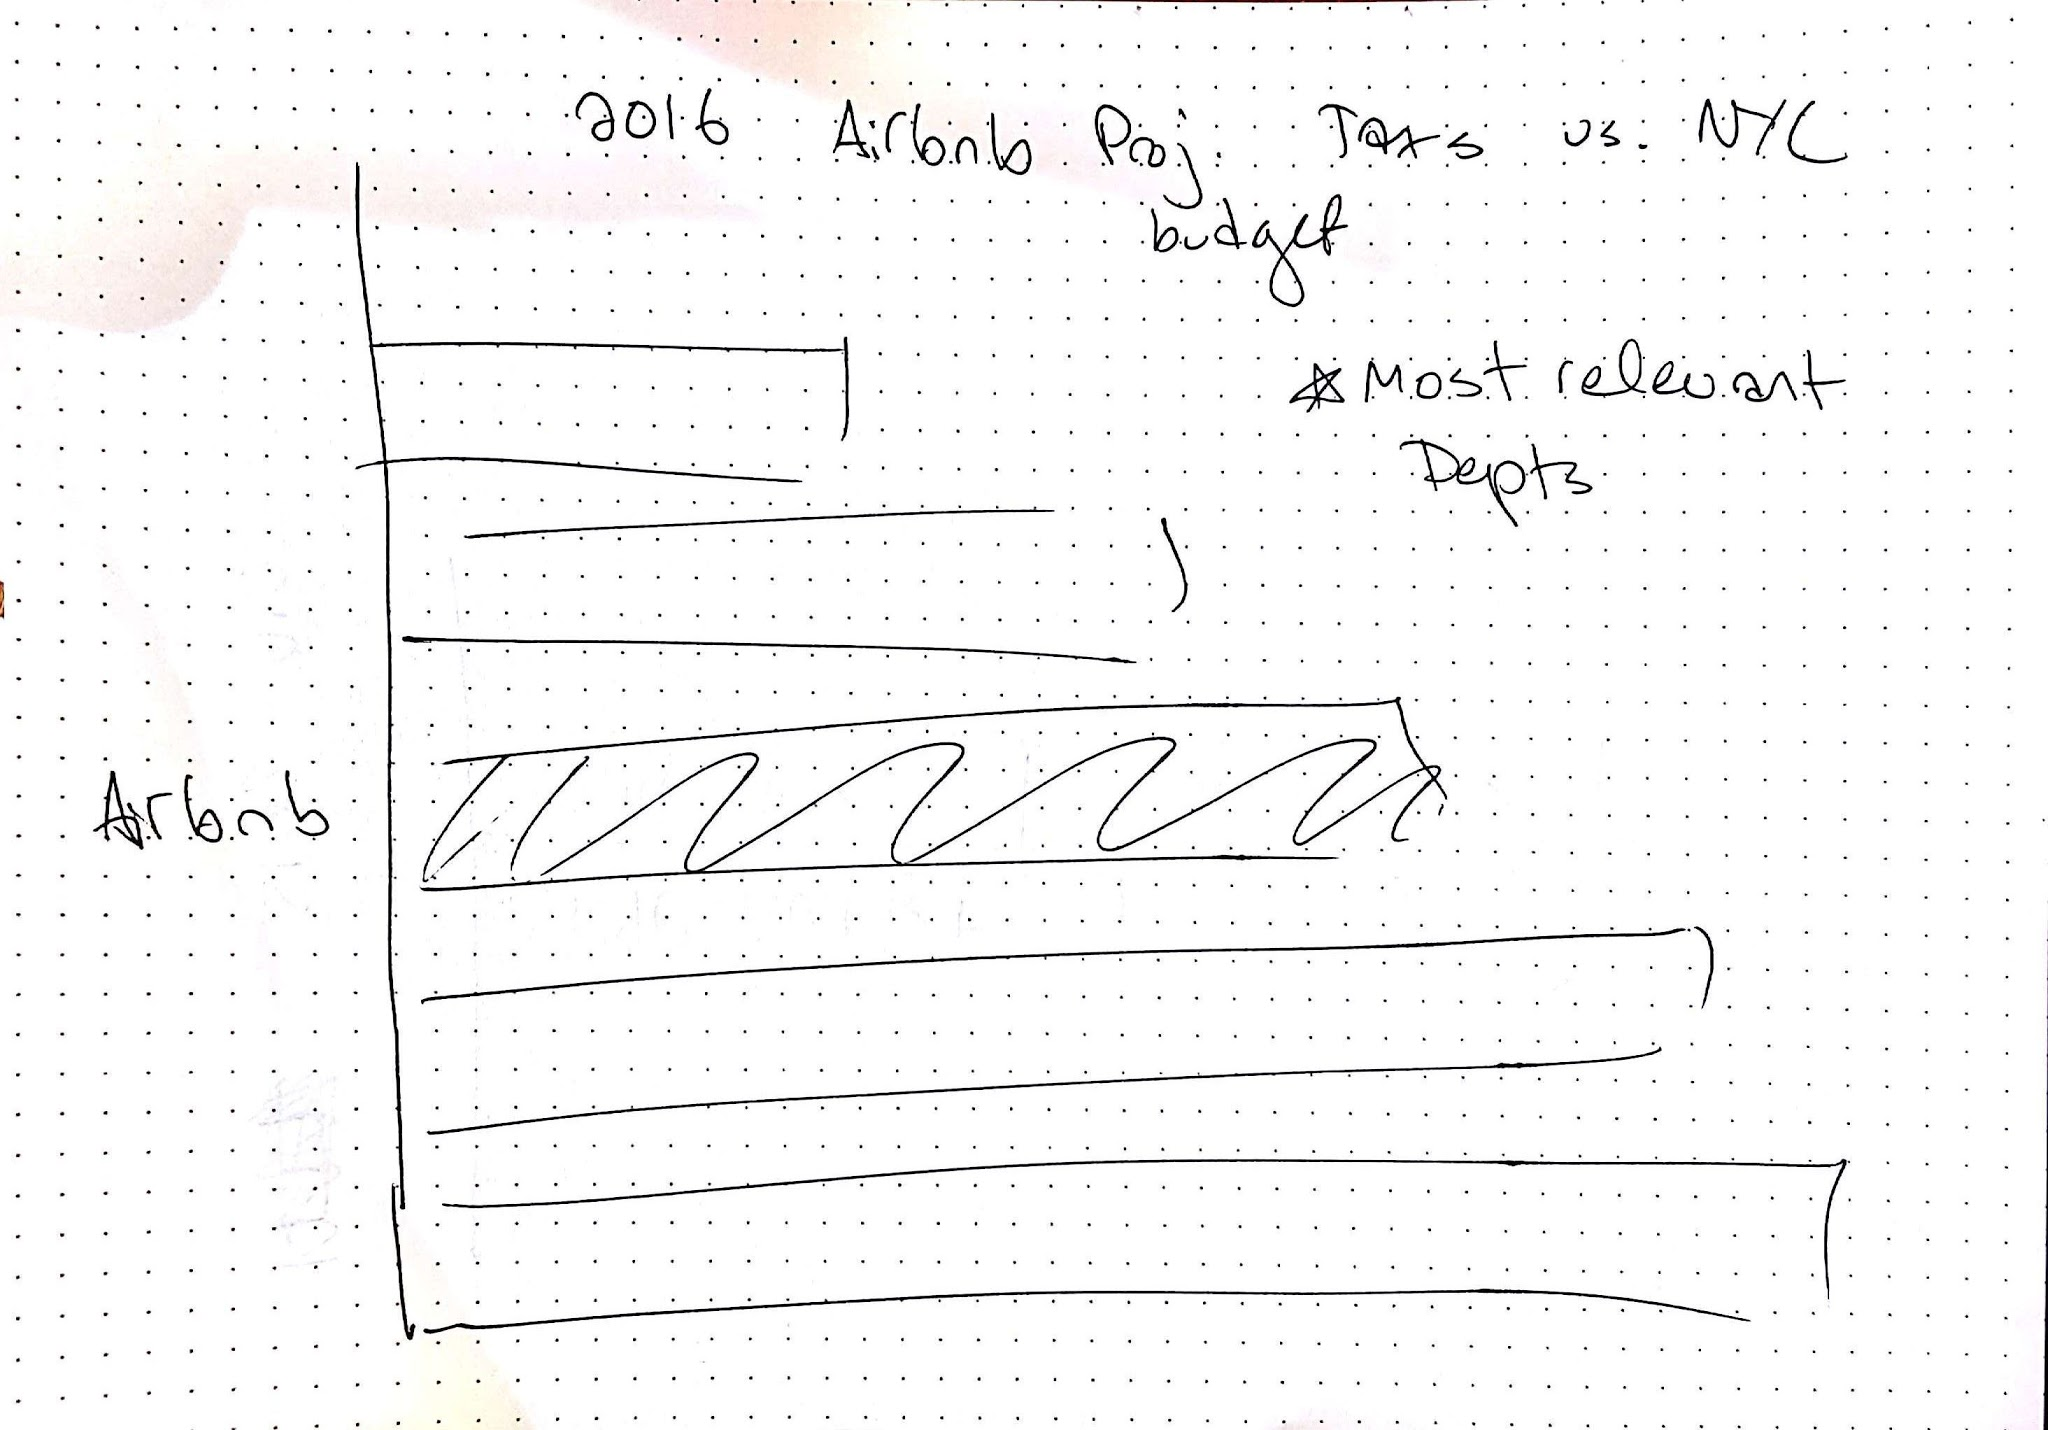 2016 Airbnb Proj. Taxes vs. NYC
budget
* Most relevant
Depts
Airbnb